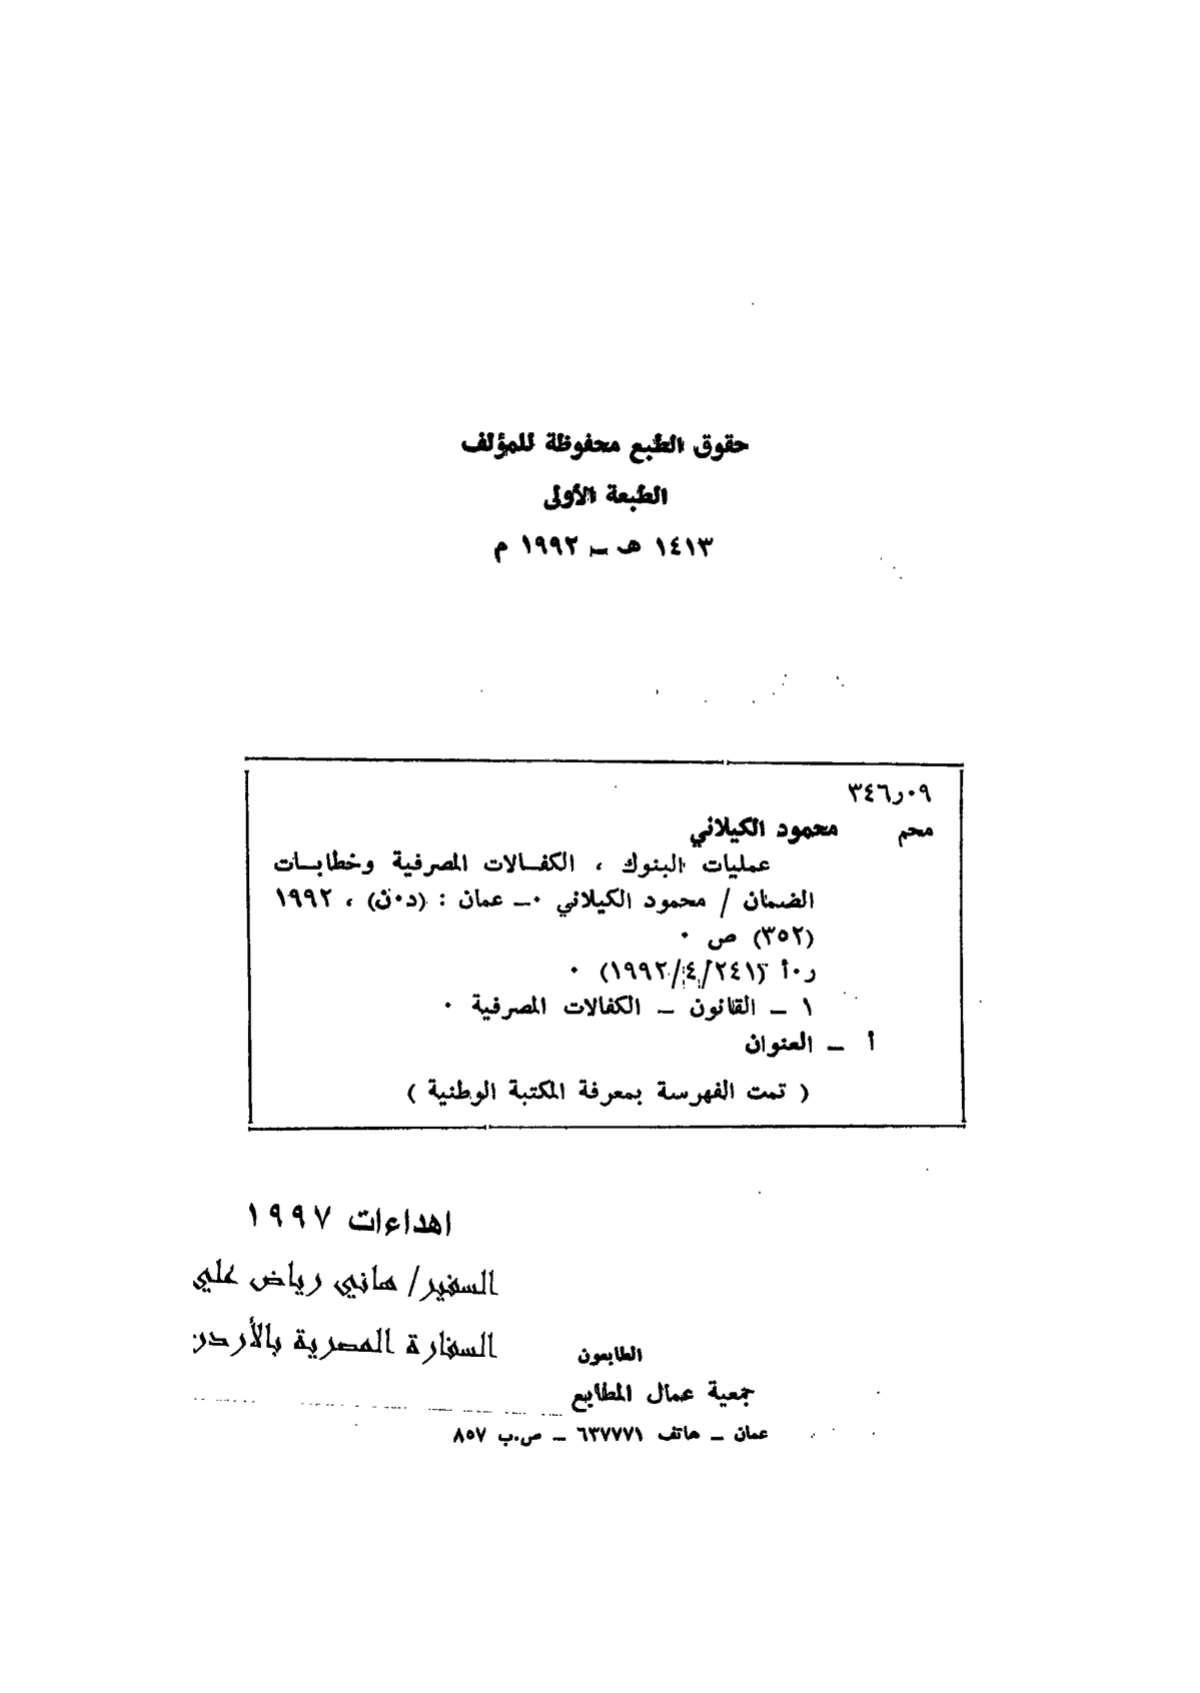 حقوق الطبع محفوظة للمؤلف
الطبعة الأولى
١٤١٣ هـ ــ ١٩٩٢ م
٣٤٦ر٠٩
محم محمود الكيلاني
عمليات البنوك ، الكفــالات المصرفية وخطابــات
الضمان / محمود الكيلاني ٠ــ عمان : (د٠ن) ، ١٩٩٢
(٣٥٢) ص ٠
ر٠أ (١٩٩٢/٤/٢٤١) ٠
١ ــ القانون ــ الكفالات المصرفية ٠
أ ــ العنوان
( تمت الفهرسة بمعرفة المكتبة الوطنية )
اهداءات ١٩٩٧
السفير/ هاني رياض علي
السفارة المصرية بالأردن
الطابعون
جمعية عمال المطابع
عمان ــ هاتف ٦٣٧٧٧١ ــ ص.ب ٨٥٧